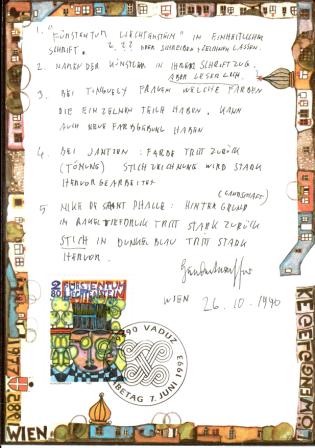 1. "FÜRSTENTUM LIECHTENSTEIN" IN EINHEITLICHER
SCHRIFT. ODER SCHREIBEN + ZEICHNUNG LASSEN.
2. NAMEN DER KÜNSTLER IN IHREM SCHRIFTZUG.
ABER LESERLICH.
3. BEI TINGUELY FRAGEN WELCHE FARBEN
DIE EINZELNEN TEILE HABEN. KANN
AUCH NEUE FARBGEBUNG HABEN
4. BEI JANTZEN: FARBE TRITT ZURÜCK
(TÖNUNG) STICHZEICHNUNG WIRD STARK
HERVOR GEARBEITET
(LANDSCHAFT)
5 NIKI DE SAINT PHALLE: HINTERGRUND
IN RAKELTIEFDRUCK TRITT STARK ZURÜCK
STICH IN DUNKELBLAU TRITT STARK
HERVOR.
Hundertwasser
WIEN 26.10-1990
2 80 FÜRSTENTUM
LIECHTENSTEIN
9490 VADUZ
AUSGABETAG 7. JUNI 1993
WIEN
1977 1982